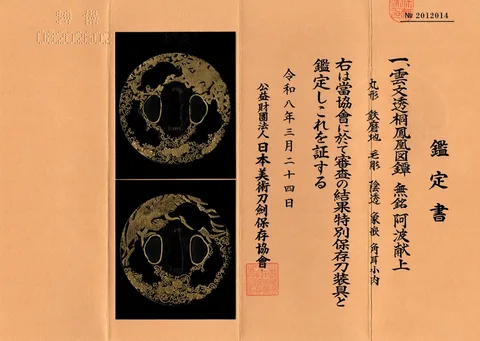 № 2012014
鑑定書
一、雲文透桐鳳凰図鐔 無銘 阿波献上
丸形 鉄磨地 毛彫 陰透 象嵌 角耳小肉
右は當協會に於て審査の結果特別保存刀装具と
鑑定しこれを証する
令和八年三月二十四日
公益財團法人 日本美術刀劍保存協會